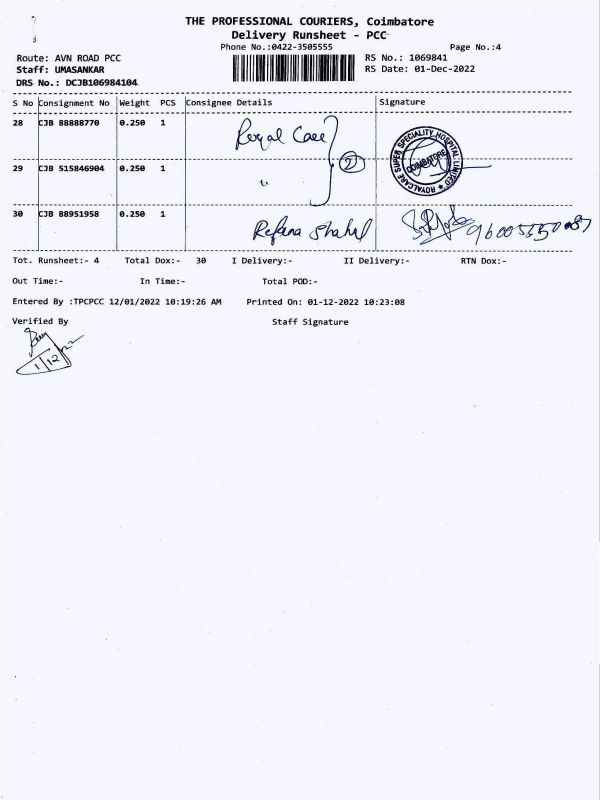 THE PROFESSIONAL COURIERS, Coimbatore
Delivery Runsheet - PCC
Phone No.:0422-3505555 Page No.:4
Route: AVN ROAD PCC RS No.: 1069841
Staff: UMASANKAR RS Date: 01-Dec-2022
DRS No.: DCJB106984104
S No Consignment No Weight PCS Consignee Details Signature
28 CJB 88888770 0.250 1 Royal Care
ROYALCARE SUPER SPECIALITY HOSPITAL LIMITED ★ COIMBATORE
29 CJB 515846904 0.250 1 〃 2
30 CJB 88951958 0.250 1 Refana Shahul
Tot. Runsheet:- 4 Total Dox:- 30 I Delivery:- II Delivery:- RTN Dox:-
Out Time:- In Time:- Total POD:-
Entered By :TPCPCC 12/01/2022 10:19:26 AM Printed On: 01-12-2022 10:23:08
Verified By Staff Signature
1/12/22